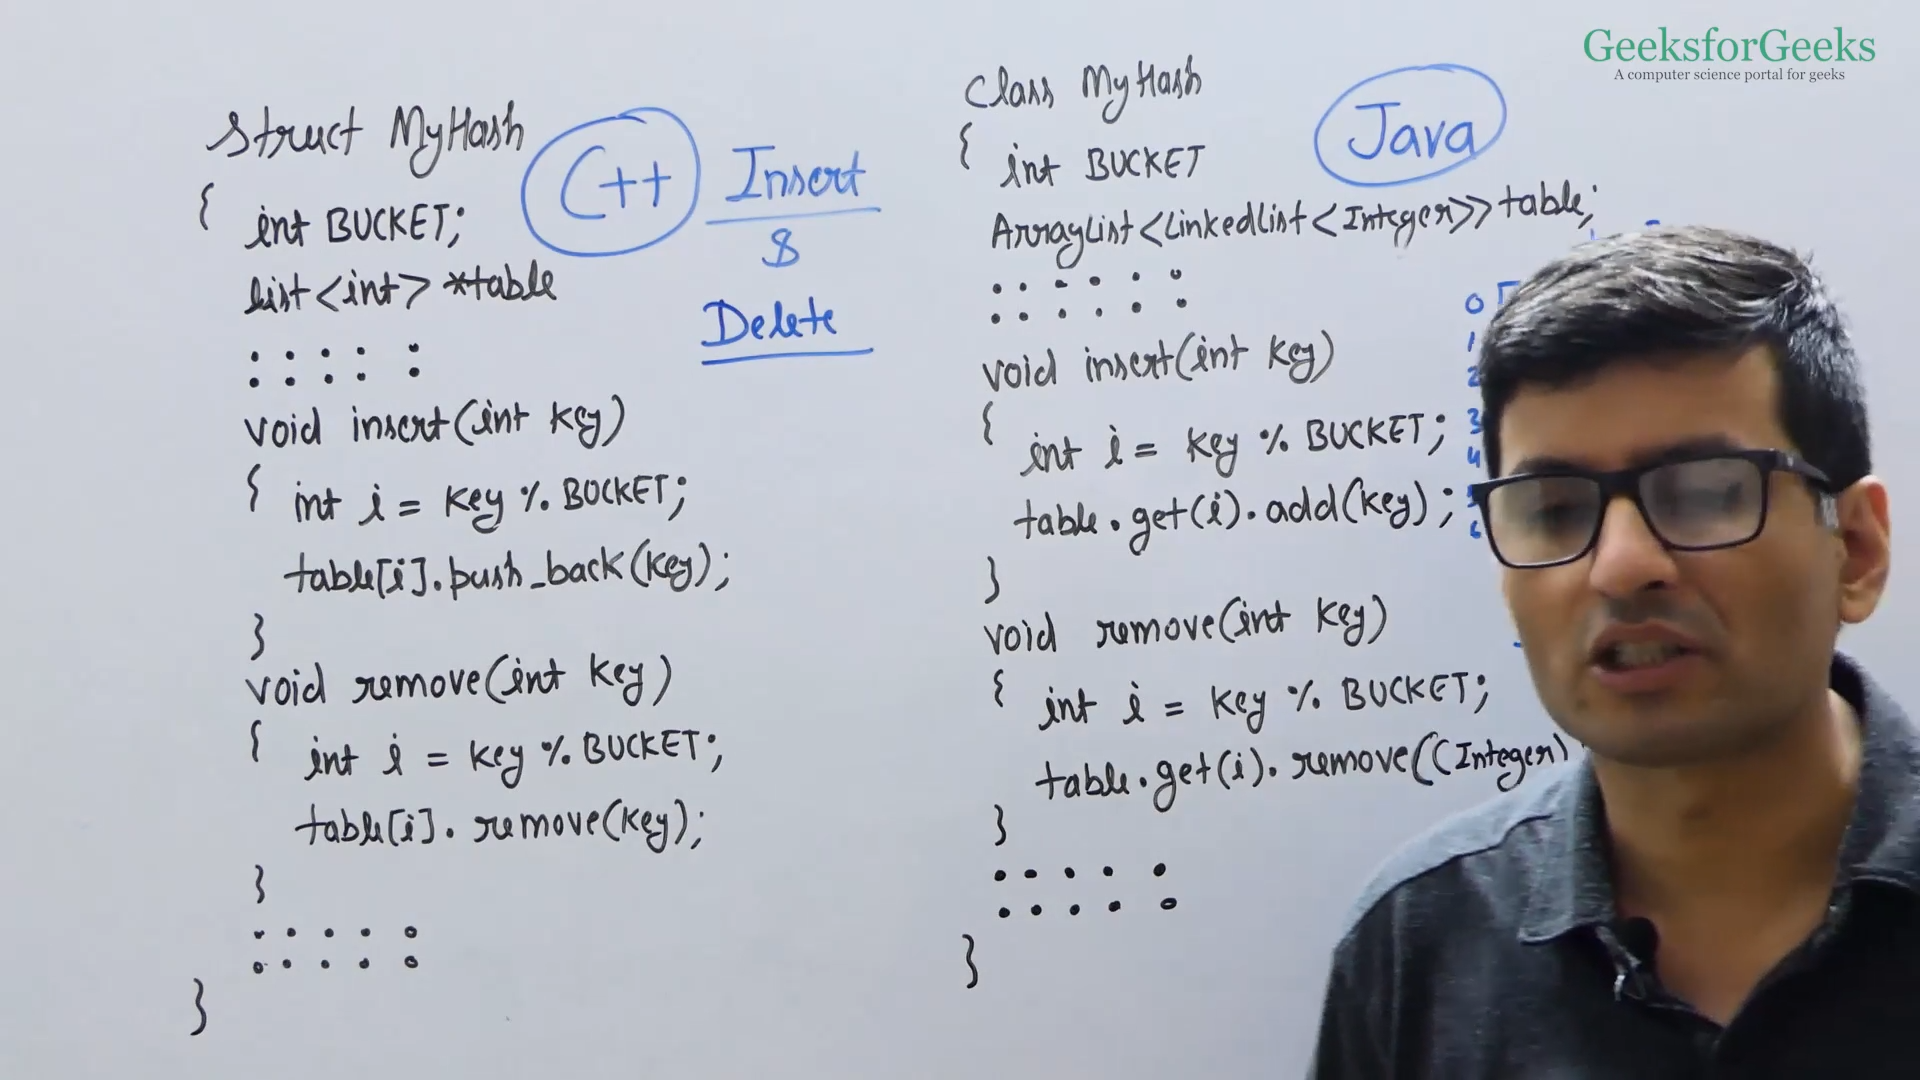 GeeksforGeeks
A computer science portal for geeks
Struct MyHash
{ int BUCKET;
list<int> *table
void insert(int key)
{ int i = key % BUCKET;
table[i].push_back(key);
}
void remove(int key)
{ int i = key % BUCKET;
table[i].remove(key);
}
}
C++
Insert
&
Delete
Class MyHash
{ int BUCKET
ArrayList<LinkedList<Integer>> table;
void insert(int key)
{ int i = key % BUCKET;
table.get(i).add(key);
}
void remove(int key)
{ int i = key % BUCKET;
table.get(i).remove((Integer)
}
}
Java
0
1
2
3
4
5
6